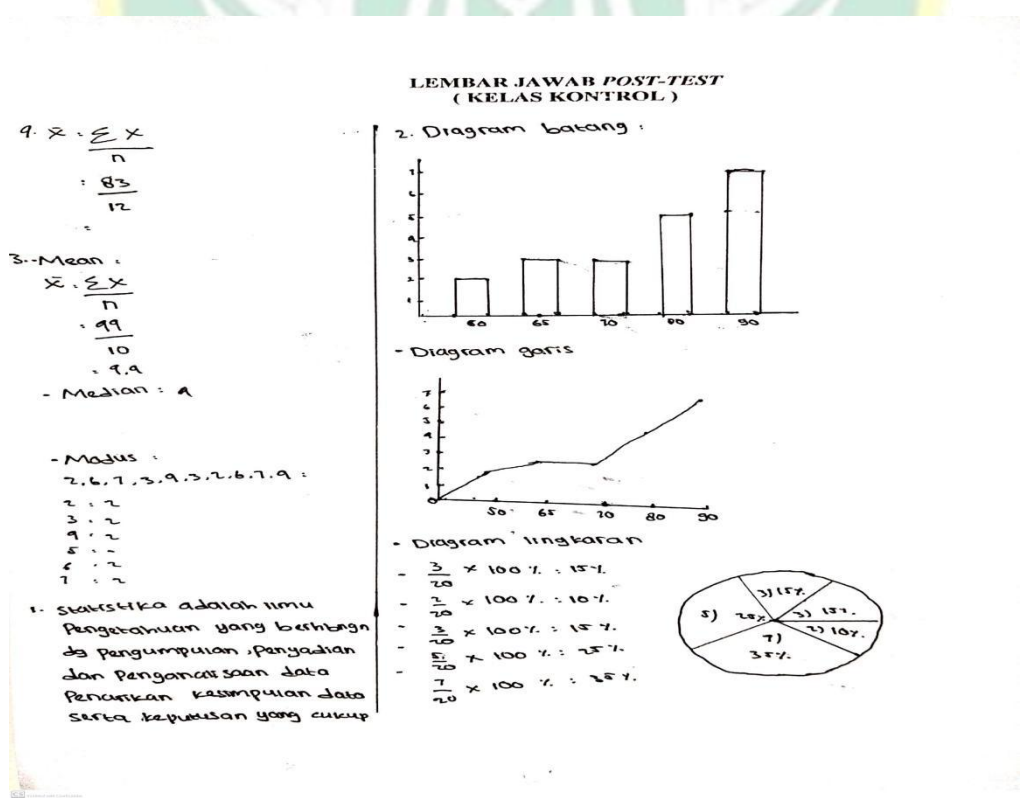 LEMBAR JAWAB POST-TEST
( KELAS KONTROL )
4. x̄ : Σx
n
: 83
12
:
3. - Mean :
x̄ : Σx
n
: 49
10
: 4,9
- Median : 4
- Modus :
2, 6, 7, 3, 4, 3, 2, 6, 7, 9 :
2 : 2
3 : 2
: 2
5 : -
6 : 2
7 : 2
1. Statistika adalah ilmu
Pengetahuan yang berhbngn
dg pengumpulan, Penyadian
dan Penganalisaan data
Penarikan kesimpulan data
serta keputusan yang cukup
2. Diagram batang :
7
6
5
4
3
2
1
50 65 70 80 90
- Diagram garis
7
6
5
4
3
2
1
0
50 65 70 80 90
- Diagram lingkaran
- 3/20 x 100 % : 15 %
- 2/20 x 100 % : 10 %
- 3/20 x 100 % : 15 %
- 5/20 x 100 % : 25 %
- 7/20 x 100 % : 35 %
3) 15%
5) 25%
3) 15%
2) 10%
7)
35%